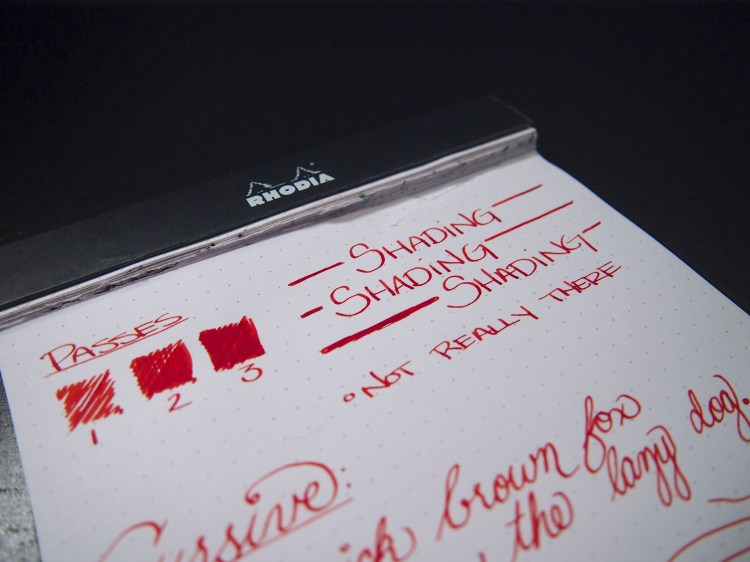 RHODIA
SHADING
SHADING
SHADING
NOT REALLY THERE
PASSES
1 2 3
Cursive:
brown fox
the lazy dog.